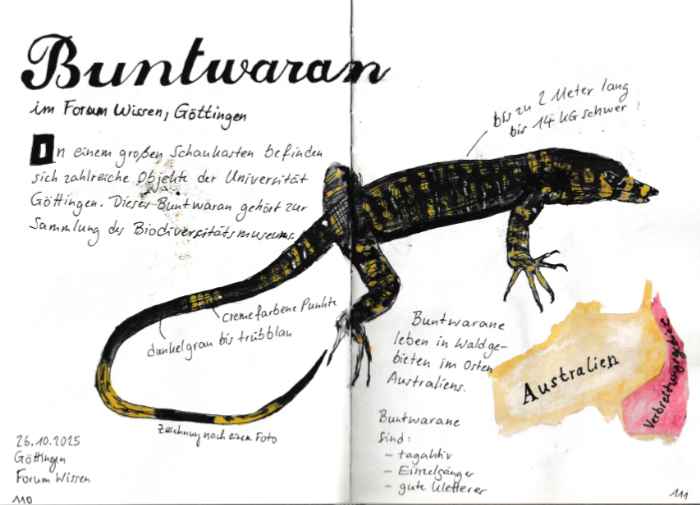 Buntwaran
im Forum Wissen, Göttingen
In einem großen Schaukasten befinden
sich zahlreiche Objekte der Universität
Göttingen. Dieser Buntwaran gehört zur
Sammlung des Biodiversitätsmuseums.
bis zu 2 Meter lang
bis 14 kg schwer!
cremefarbene Punkte
dunkelgrau bis trübblau
Zeichnung nach einem Foto
Buntwarane
leben in Waldge-
bieten im Osten
Australiens.
Australien
Verbreitungsgebiet
Buntwarane
sind:
- tagaktiv
- Einzelgänger
- gute Kletterer
26.10.2025
Göttingen
Forum Wissen
110
111